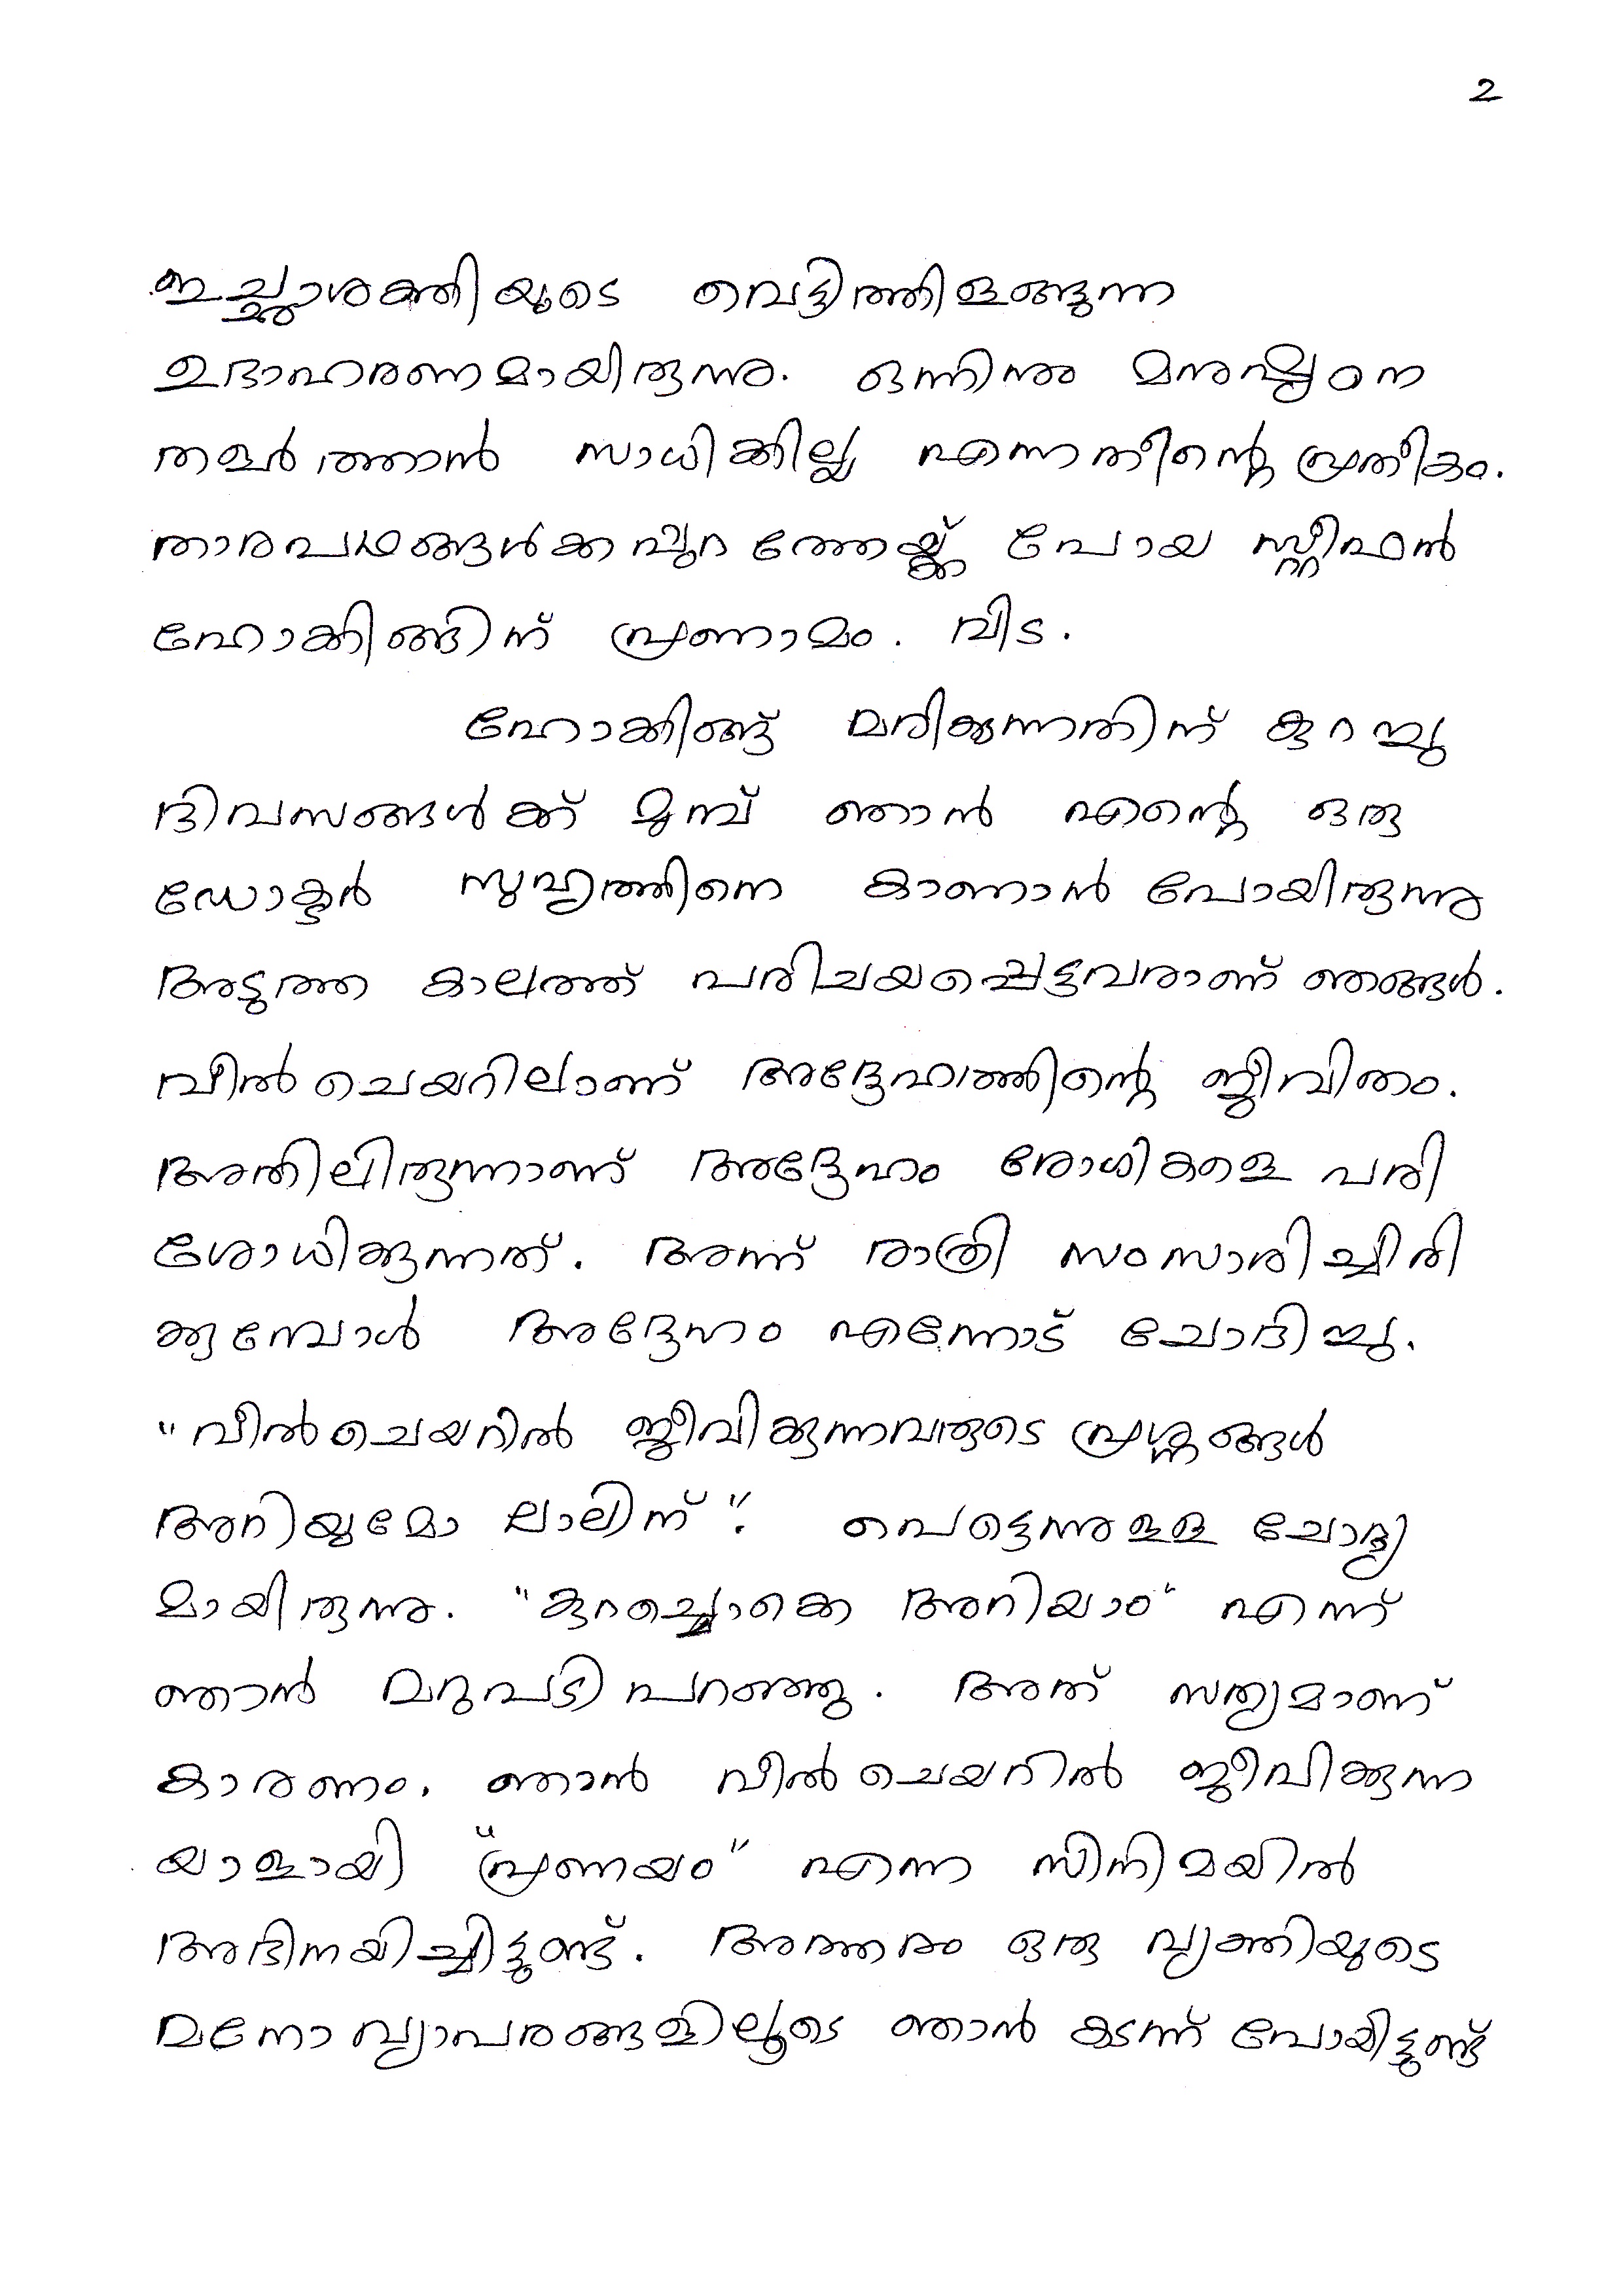 2
ഇച്ഛാശക്തിയുടെ വെട്ടിത്തിളങ്ങുന്ന
ഉദാഹരണമായിരുന്നു. ഒന്നിനും മനുഷ്യനെ
തളർത്താൻ സാധിക്കില്ല എന്നതിന്റെ പ്രതീകം.
താരപഥങ്ങൾക്കപ്പുറത്തേയ്ക്ക് പോയ സ്റ്റീഫൻ
ഹോക്കിങ്ങിന് പ്രണാമം. വിട.
ഹോക്കിങ്ങ് മരിക്കുന്നതിന് കുറച്ചു
ദിവസങ്ങൾക്ക് മുമ്പ് ഞാൻ എന്റെ ഒരു
ഡോക്ടർ സുഹൃത്തിനെ കാണാൻ പോയിരുന്നു
അടുത്ത കാലത്ത് പരിചയപ്പെട്ടവരാണ് ഞങ്ങൾ.
വീൽചെയറിലാണ് അദ്ദേഹത്തിന്റെ ജീവിതം.
അതിലിരുന്നാണ് അദ്ദേഹം രോഗികളെ പരി
ശോധിക്കുന്നത്. അന്ന് രാത്രി സംസാരിച്ചിരി
ക്കുമ്പോൾ അദ്ദേഹം എന്നോട് ചോദിച്ചു.
"വീൽചെയറിൽ ജീവിക്കുന്നവരുടെ പ്രശ്നങ്ങൾ
അറിയുമോ ലാലിന്". പെട്ടെന്നുള്ള ചോദ്യ
മായിരുന്നു. "കുറച്ചൊക്കെ അറിയാം" എന്ന്
ഞാൻ മറുപടി പറഞ്ഞു. അത് സത്യമാണ്
കാരണം. ഞാൻ വീൽചെയറിൽ ജീവിക്കുന്ന
യാളായി "പ്രണയം" എന്ന സിനിമയിൽ
അഭിനയിച്ചിട്ടുണ്ട്. അത്തരം ഒരു വ്യക്തിയുടെ
മനോവ്യാപരങ്ങളിലൂടെ ഞാൻ കടന്ന് പോയിട്ടുണ്ട്